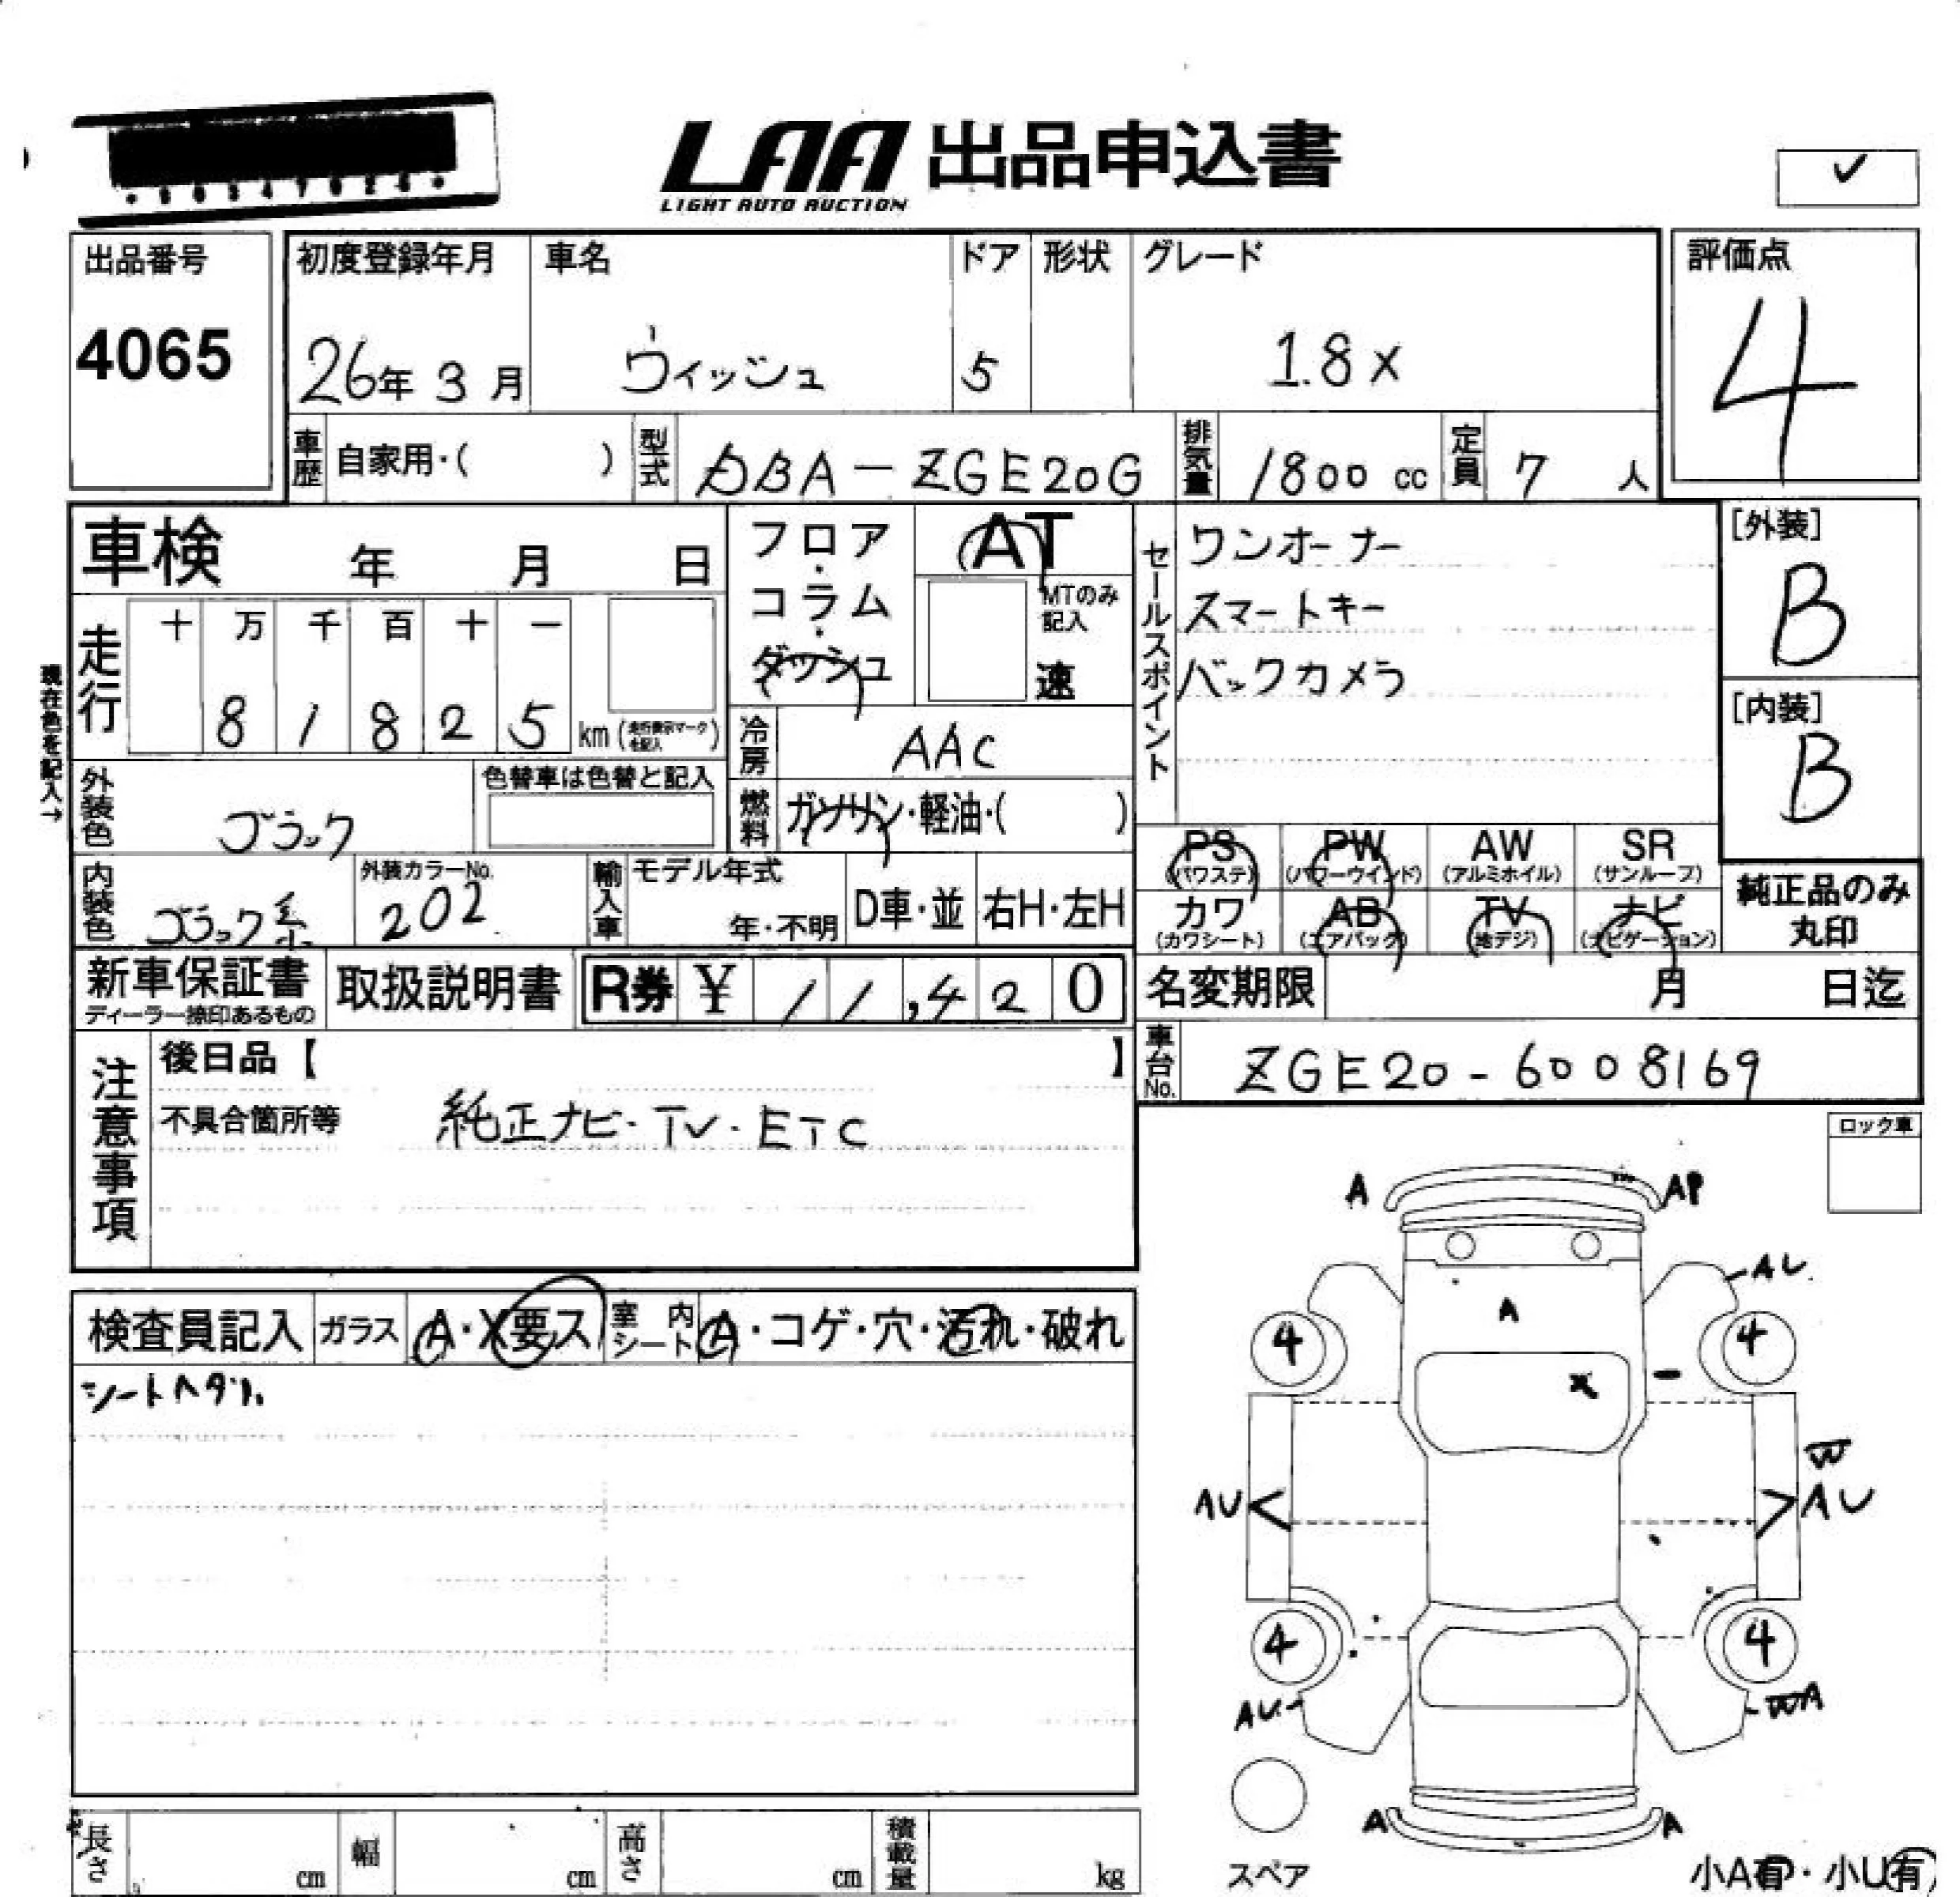 LAA 出品申込書
LIGHT AUTO AUCTION
✓
出品番号
4065
初度登録年月
26年 3月
車名
ウィッシュ
ドア
5
形状
グレード
1.8X
評価点
4
車歴 自家用・( )
型式 DBA-ZGE20G
排気量 1800 cc
定員 7 人
車検 年 月 日
フロア・コラム・ダッシュ
AT
MTのみ記入
速
セールスポイント
ワンオーナー
スマートキー
バックカメラ
[外装]
B
[内装]
B
現在色を記入→
走行
十 万 千 百 十 一
8 1 8 2 5 km (走行表示マークを記入)
冷房 AAC
燃料 ガソリン・軽油・( )
外装色 ブラック
色替車は色替と記入
内装色 ブラック系
外装カラーNo.
202
輸入車 モデル年式
年・不明
D車・並
右H・左H
PS (パワステ)
PW (パワーウインド)
AW (アルミホイル)
SR (サンルーフ)
カワ (カワシート)
AB (エアバック)
TV (地デジ)
ナビ (ナビゲーション)
純正品のみ丸印
新車保証書
ディーラー捺印あるもの
取扱説明書
R券 ¥ 11,420
名変期限 月 日迄
車台No. ZGE20-6008169
注意事項
後日品【 】
不具合箇所等 純正ナビ・TV・ETC
ロック車
検査員記入
ガラス A・X要ス
室内シート A・コゲ・穴・汚れ・破れ
シートヘタリ
A
AP
AU
A
4
4
X
W
AU
AU
4
4
AU
WA
A
A
スペア
小A有・小U有
長さ cm
幅 cm
高さ cm
積載量 kg